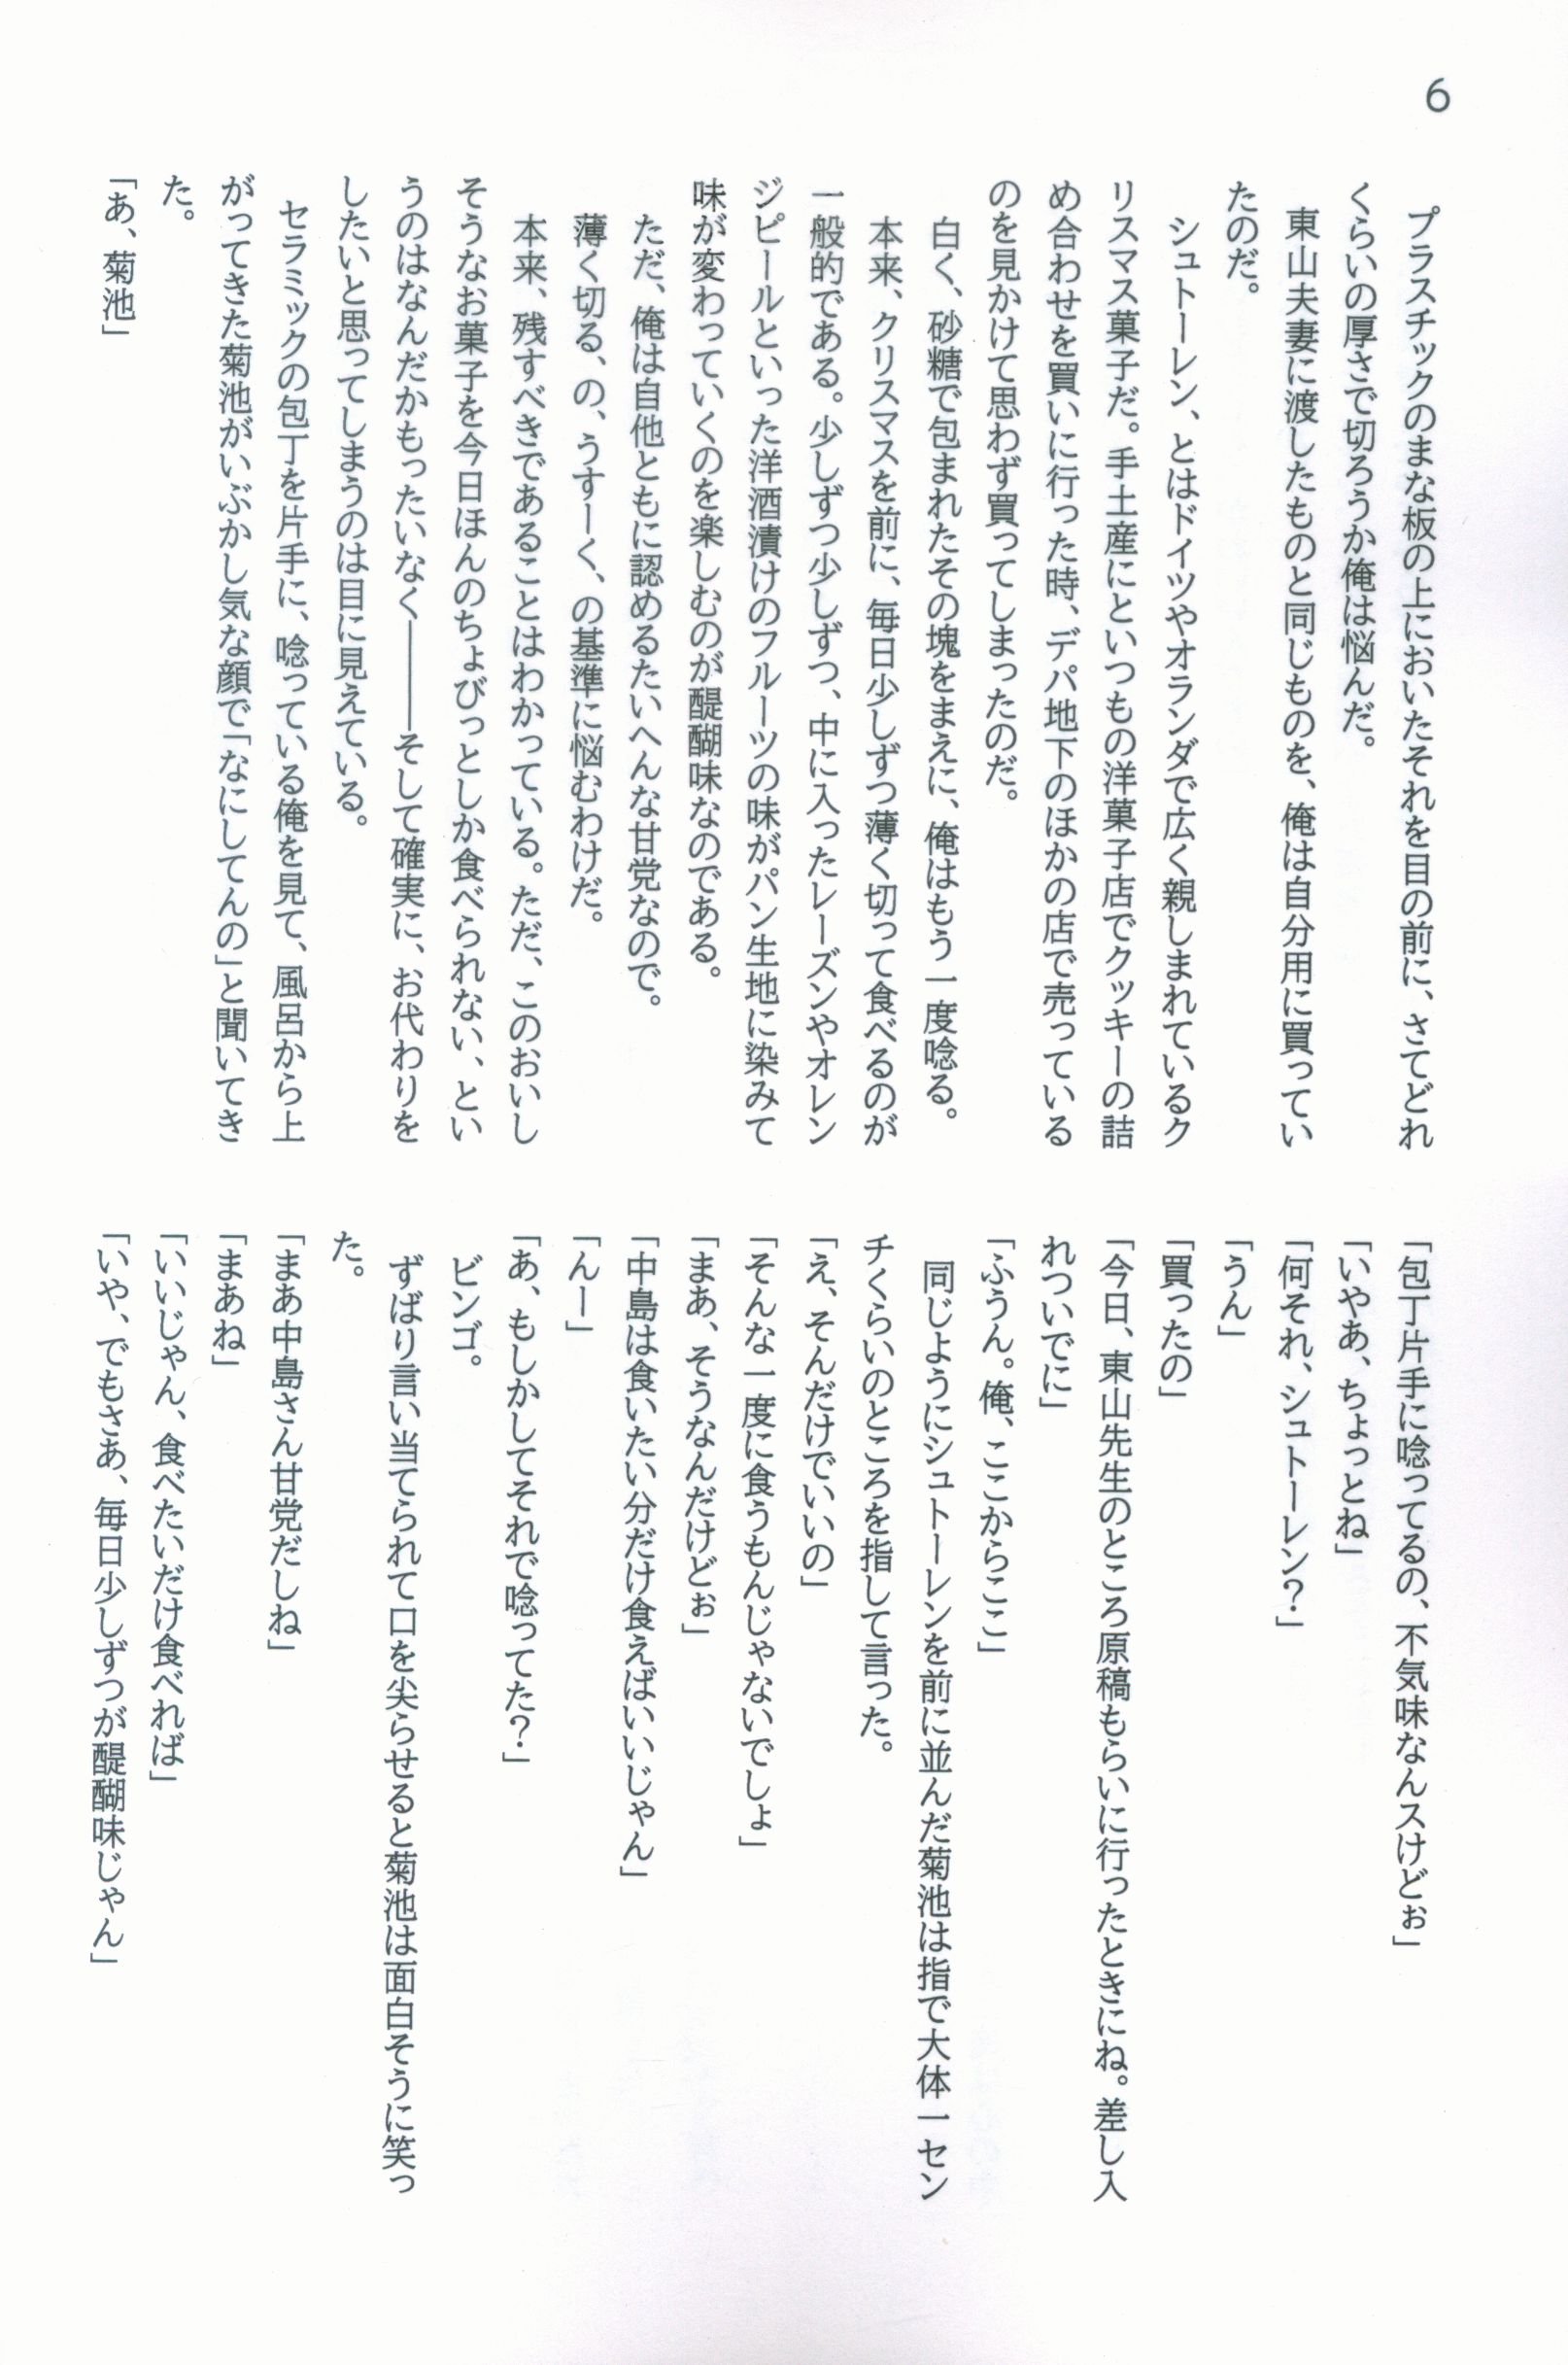 6
プラスチックのまな板の上においたそれを目の前に、さてどれ
くらいの厚さで切ろうか俺は悩んだ。
東山夫妻に渡したものと同じものを、俺は自分用に買ってい
たのだ。
シュトーレン、とはドイツやオランダで広く親しまれているク
リスマス菓子だ。手土産にといつもの洋菓子店でクッキーの詰
め合わせを買いに行った時、デパ地下のほかの店で売っている
のを見かけて思わず買ってしまったのだ。
白く、砂糖で包まれたその塊をまえに、俺はもう一度唸る。
本来、クリスマスを前に、毎日少しずつ薄く切って食べるのが
一般的である。少しずつ少しずつ、中に入ったレーズンやオレン
ジピールといった洋酒漬けのフルーツの味がパン生地に染みて
味が変わっていくのを楽しむのが醍醐味なのである。
ただ、俺は自他ともに認めるたいへんな甘党なので。
薄く切る、の、うすーく、の基準に悩むわけだ。
本来、残すべきであることはわかっている。ただ、このおいし
そうなお菓子を今日ほんのちょびっとしか食べられない、とい
うのはなんだかもったいなく――そして確実に、お代わりを
したいと思ってしまうのは目に見えている。
セラミックの包丁を片手に、唸っている俺を見て、風呂から上
がってきた菊池がいぶかし気な顔で「なにしてんの」と聞いてき
た。
「あ、菊池」
「包丁片手に唸ってるの、不気味なんスけどぉ」
「いやあ、ちょっとね」
「何それ、シュトーレン？」
「うん」
「買ったの」
「今日、東山先生のところ原稿もらいに行ったときにね。差し入
れついでに」
「ふうん。俺、ここからここ」
同じようにシュトーレンを前に並んだ菊池は指で大体一セン
チくらいのところを指して言った。
「え、そんだけでいいの」
「そんな一度に食うもんじゃないでしょ」
「まあ、そうなんだけどぉ」
「中島は食いたい分だけ食えばいいじゃん」
「んー」
「あ、もしかしてそれで唸ってた？」
ビンゴ。
ずばり言い当てられて口を尖らせると菊池は面白そうに笑っ
た。
「まあ中島さん甘党だしね」
「まあね」
「いいじゃん、食べたいだけ食べれば」
「いや、でもさあ、毎日少しずつが醍醐味じゃん」